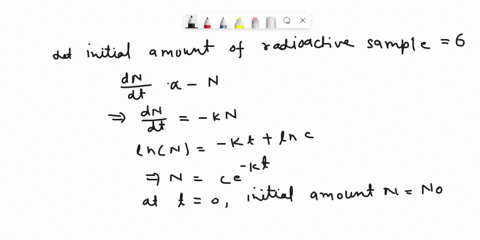 let initial amount of radioactive sample = 6
dN/dt α - N
⇒ dN/dt = - KN
ln(N) = - Kt + ln c
⇒ N = ce^-kt
at t = 0, initial amount N = No